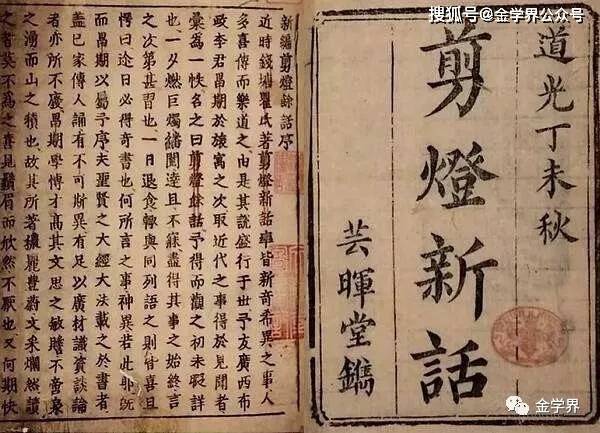 搜狐号@金学界公众号
道光丁未秋
剪燈新話
芸暉堂鐫
新編剪燈餘話序
近時錢塘瞿氏著剪燈新話率皆新奇希異之事人
多喜傳而樂道之由是其說盛行于世予友廣西布
政李君昌期於旅寓之次取近代之事得於見聞者
彙為一帙名之曰剪燈餘話予得而觀之初未暇詳
也一夕燃巨燭繙閱達旦不寐盡得其事之始終言
之次第甚習也一日退食輒與同列語之則皆喜且
愕曰途日必得奇書也何所言之事神異若此耶既
而昌期以屬予序夫聖賢之大經大法載之於書者
盡已家傳人誦有不可斯異有足以廣材識資談論
者亦所不廢昌期學博才高其文思之敏贍不啻泉
之湧而山之積也故其所著穠麗豐蔚文采爛然讀
之者莫不為之喜見鬚眉而欣然不厭也又何期快
金学界